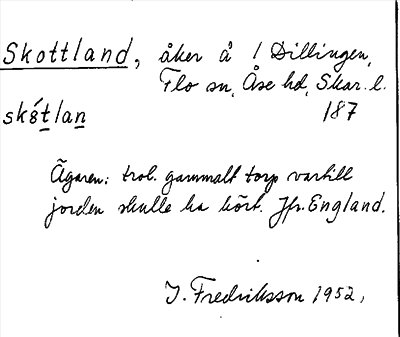 Skottland, åker å 1 Dillingen,
Flo sn, Åse hd, Skar. l.
187
skótlan
Ägaren: trol. gammalt torp vartill
jorden skulle ha hört. Jfr. England.
J. Fredriksson 1952,